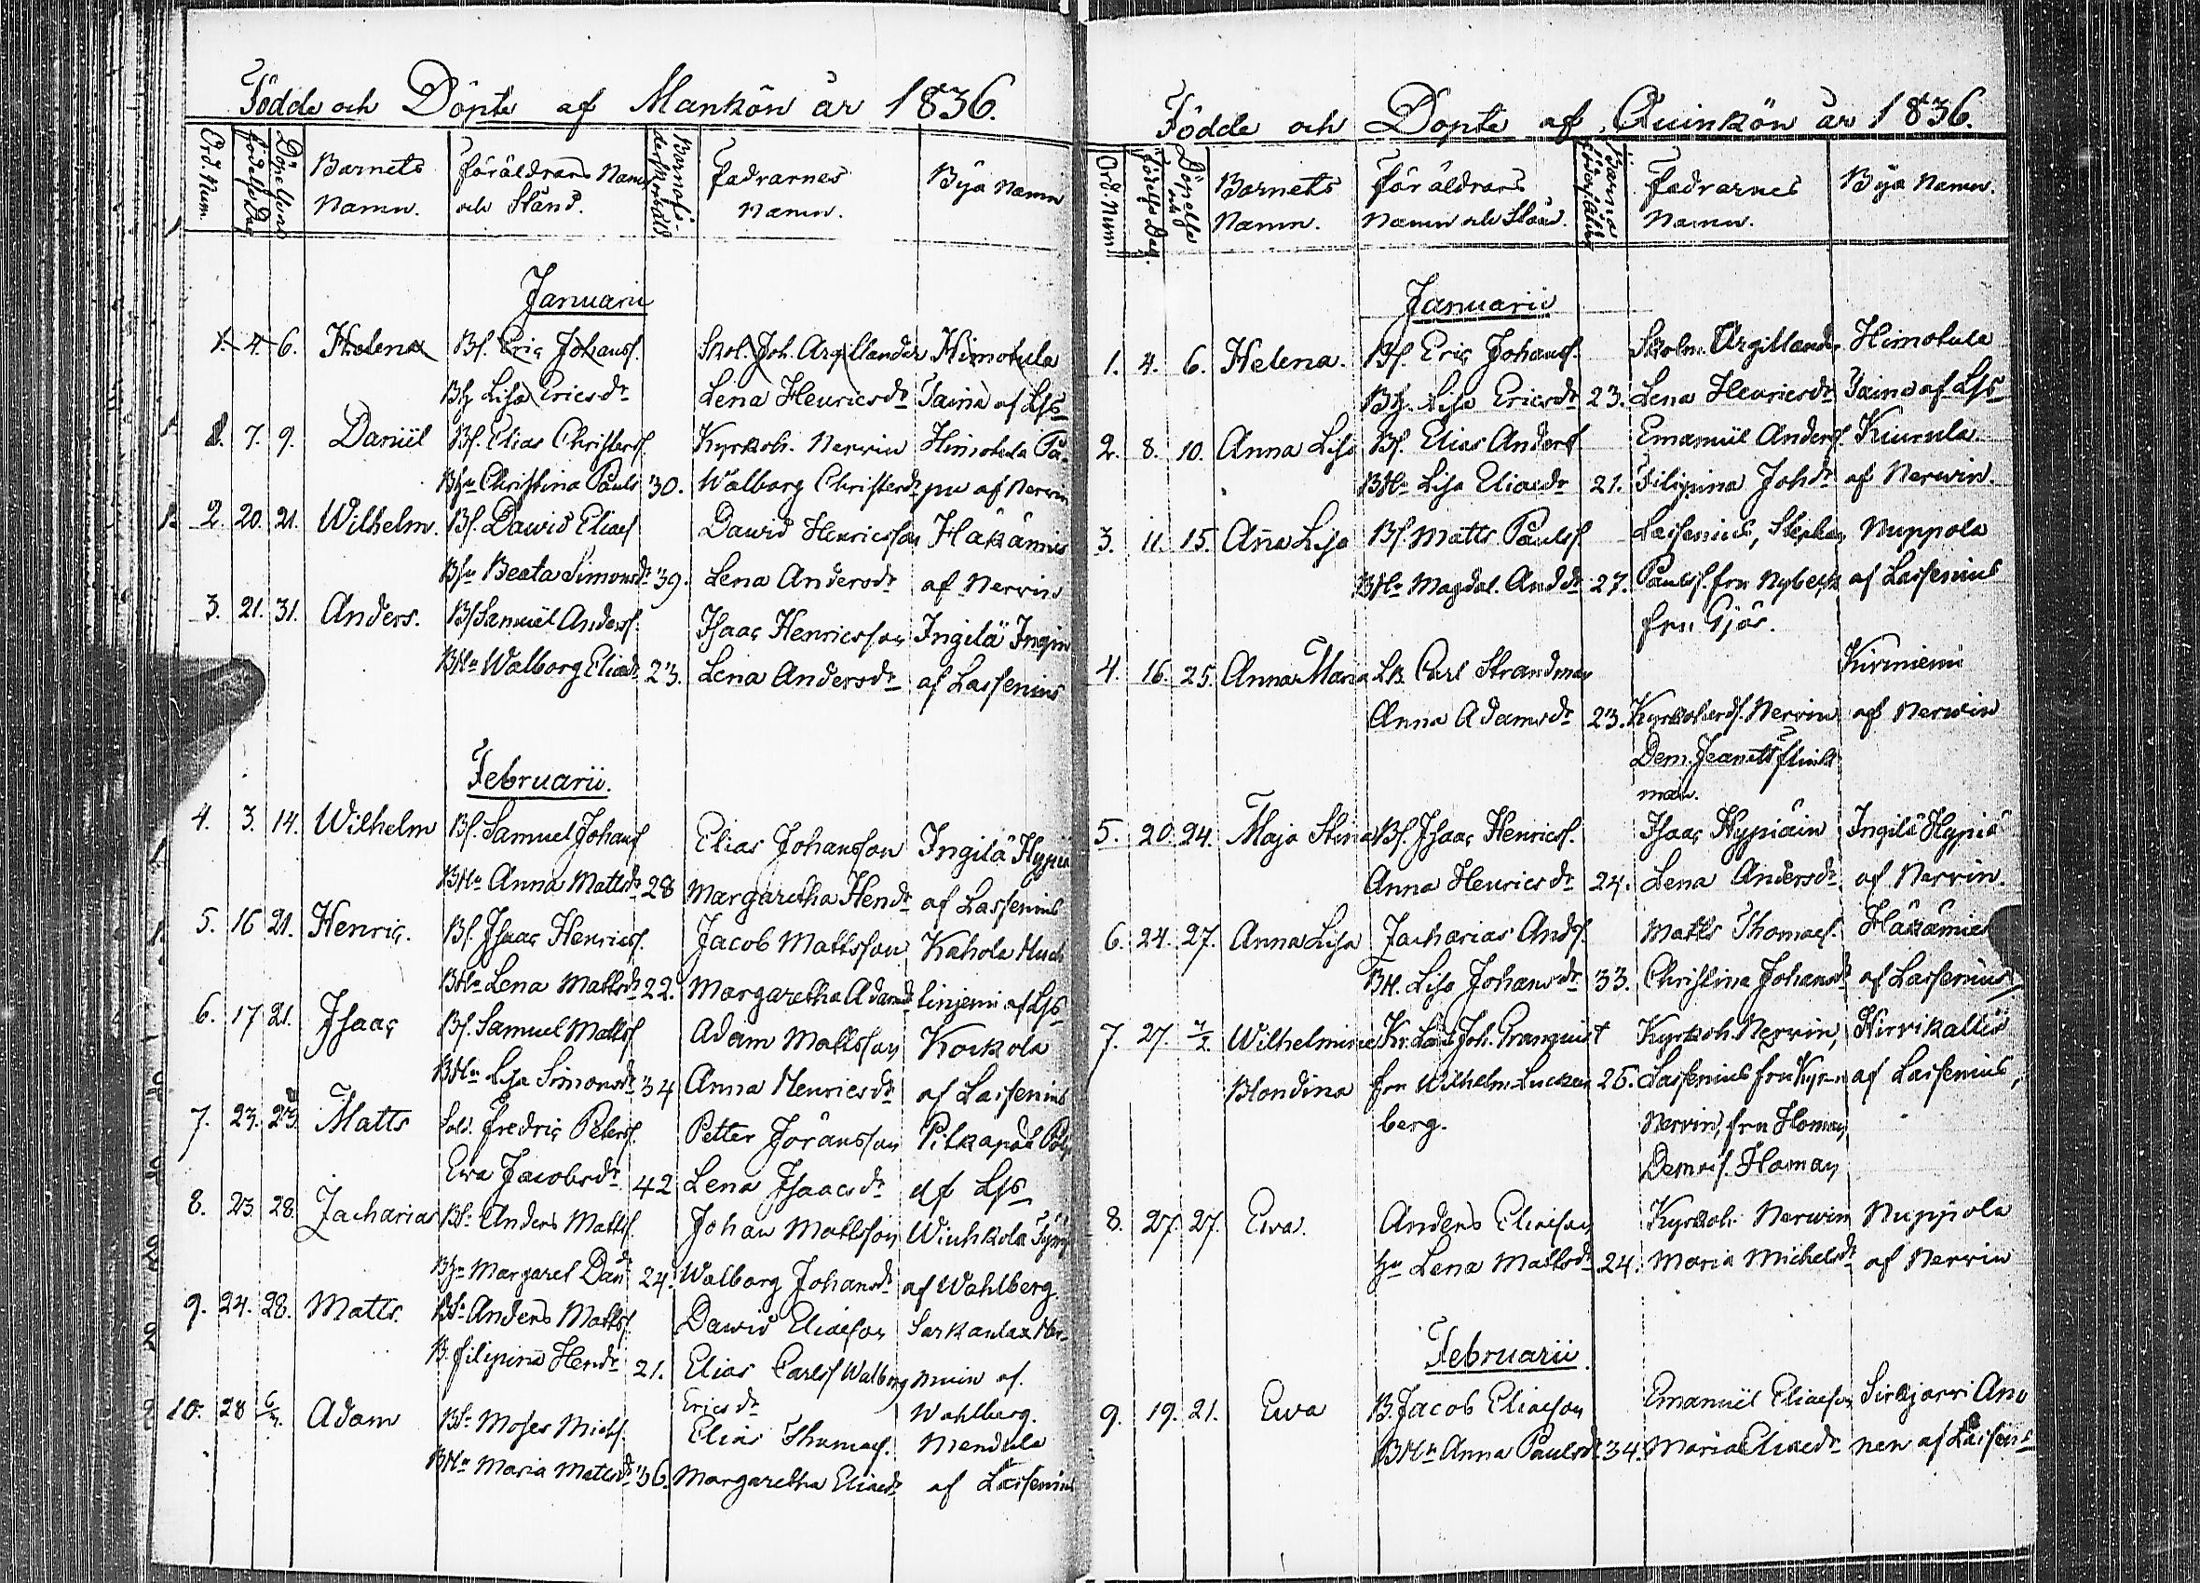 Födde och Döpte af Mankön år 1836.
Ord. Num.
Födelse Dag
Barnets Namn.
Föräldrars Namn och Stånd.
Fadrarnes Namn.
Byä Namn
Januarii
1. 4. 6. Helena Bs. Eric Johanss. Skol. Joh. Argillander Himotula
Lisa Ericsdr Lena Henricsdr Taina af Lss
1. 7. 9. Daniel Bs. Elias Christers. Kyrkoh. Nervin Himotula Pä-
Christina Pauls 30. Walborg Christersdr af Nervin
2. 20. 21. Wilhelm. Bs. Dawid Elias Dawid Henricsson Häkämies
Beata Simonsdr 39. Lena Andersdr af Nervin
3. 21. 31. Anders. Bs Samuel Anders. Isaac Henricsson Ingilä Ingin
BHu Walborg Eliædr 23. Lena Andersdr af Lassenius
Februarii.
4. 3. 14. Wilhelm Bs. Samuel Johans Elias Johansson Ingilä Hypiä
BHu Anna Mattsdr 28 Margaretha Hendr af Lassenius
5. 16 21. Henric. Bs. Isaac Henricss. Jacob Mattsson Kahola Huch
BHu Lena Mattsdr 22. Margaretha Adamdr linjemi af Lss
6. 17 21. Isaac Bs. Samuel Matts Adam Mattsson Korkola
BHu Lisa Simonsdr 34 Anna Henricsdr af Lassenius
7. 23. Matts Sold. Fredric Peters. Petter Joransson Pilkapää
Ewa Jacobsdr 42 Lena Isaacsdr af Lss
8. 23. 28. Zacharias Bs. Anders Matts. Johan Mattsson Wiuhkola
Margaret Dan 24. Walborg Johansdr af Wahlberg
9. 24. 28. Matts. Bs. Anders Matts. Dawid Eliæson Sarkanlax Her-
B. filipina Hendr 21. Elias Carlss Walborg nuin af
Ericsdr Wahlberg.
10. 28 Adam Bs. Moses Michs. Elias Thomæs. Mendula
BHu Maria Mattsdr 36. Margaretha Eliædr af Lassenius
Födde och Dopte af Quinkön år 1836.
Ord Num
Födelse Dag.
Döpelse
Barnets Namn.
Föräldrars Namn och Stån.
Fadrarnes Namn.
Byä Namn.
Januarii
1. 4. 6. Helena. Bs. Eric Johanss. Skolm. Argillander Himotula
Lisa Ericsdr 23. Lena Henricsdr Taina af Lss
2. 8. 10. Anna Lisa Bs. Elias Anders Emanuel Anders. Kiurula.
BHu Lisa Eliædr 21. Filipina Johdr af Nerwin.
3. 11. 15. Anna Lisa Bs. Matts Paulss. Lassenius, Stephan Nuppola
BHu Magdal. Anddr 27. Paulss. fru Nybeck af Lassenius
fru Gjös.
4. 16. 25. Anna Maria Carl Strandman Kirmiemi
Anna Adamsdr 23. Kyrkoherd. Nervin af Nerwin
Dem. Jeanett flink
man.
5. 20. 24. Maja Stina Bs. Isaac Henricss. Isaac Hypiäin Ingilä Hypiä
Anna Henricsdr 24. Lena Andersdr af Nervin.
6. 24. 27. Anna Lisa Zacharias Ands. Matts Thomæs. Häkämies
BH. Lisa Johansdr 33. Christina Johansdr af Lassenius
7. 27. 7/2. Wilhelmina Joh. Granquist Kyrkoh. Nervin, Hirvikallio
Blondina fru Wilhelm. Lucken 26. Lassenius af Lassenius,
berg. Nervin, fru Homan,
Homan
8. 27. 27. Ewa. Anders Eliæson Kyrkoh. Nerwin Nuppola
Hu Lena Mattsdr 24. Maria Michelsdr af Nervin
Februarii
9. 19. 21. Ewa B. Jacob Eliæson Emanuel Eliæson Sirkjärvi Ano
BHu Anna Paulsdr 34. Maria Eliædr nen af Lassens